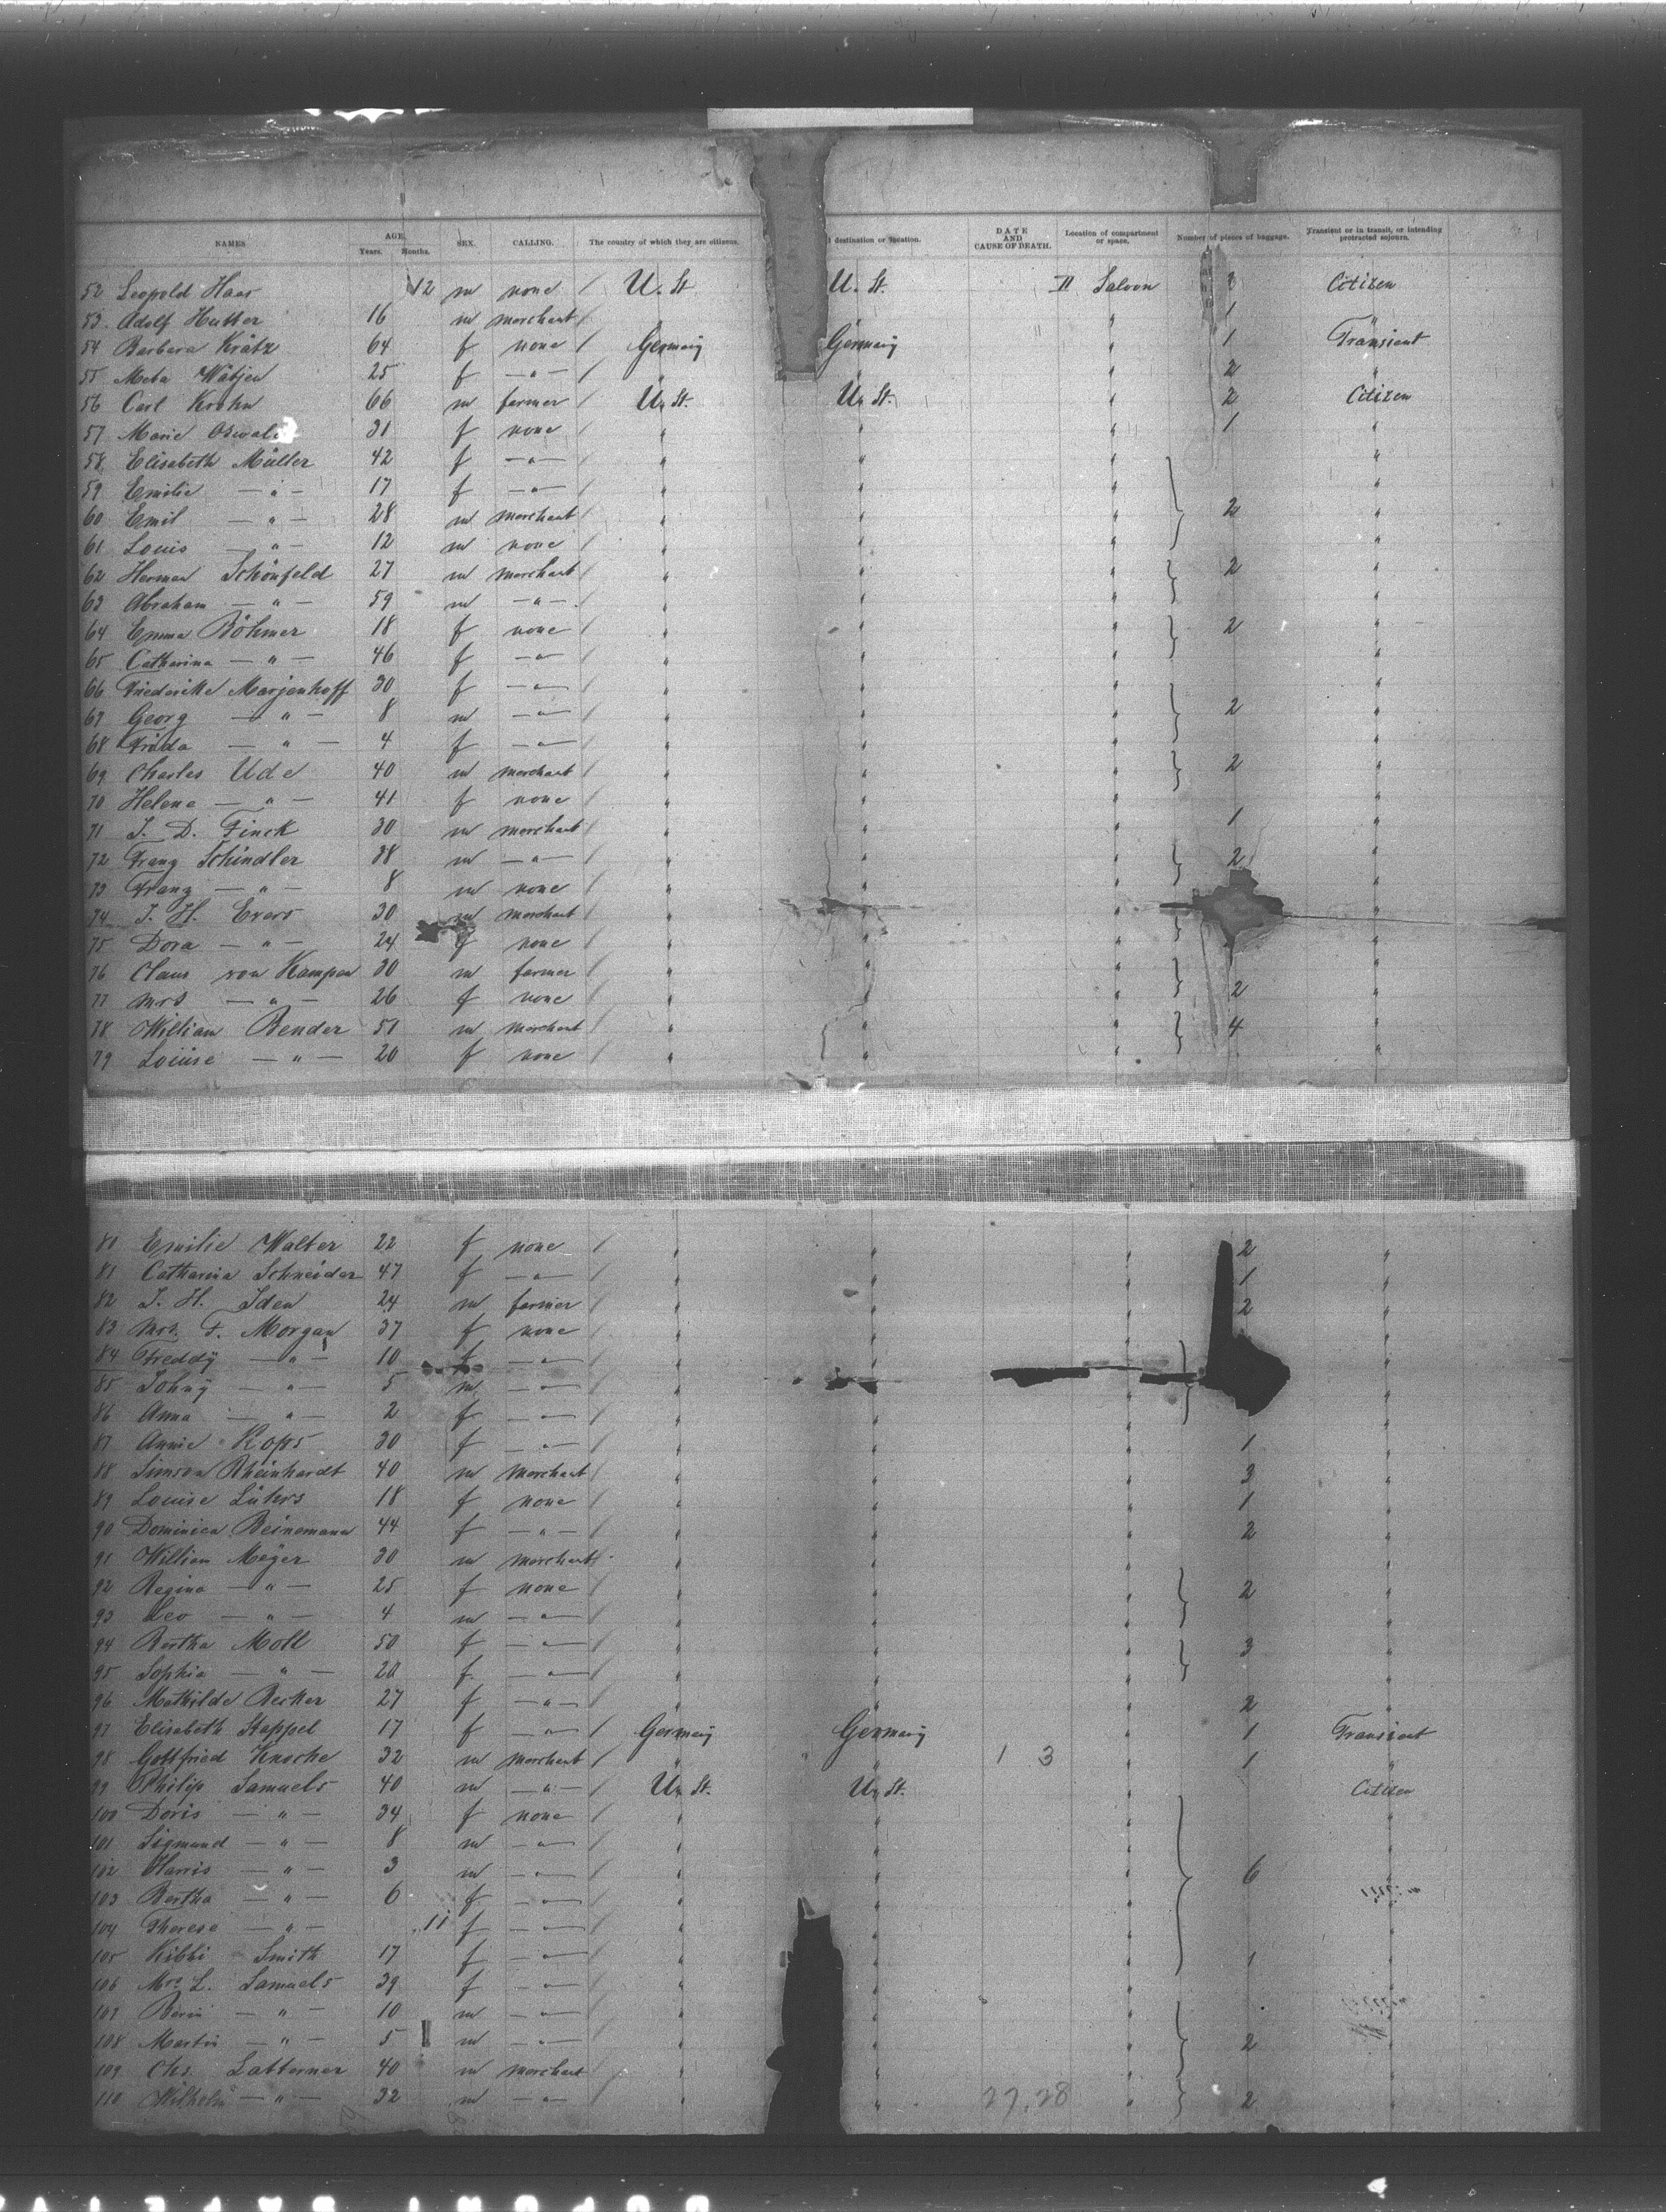 NAMES AGE, Years. Months. SEX. CALLING. The country of which they are citizens. destination or location. DATE AND CAUSE OF DEATH. Location of compartment or space. Number of pieces of baggage. Transient or in transit, or intending protracted sojourn.
52 Leopold Haas 12 m none / U. St. U. St. II Saloon 3 Citizen
53. Adolf Hutter 16 m merchant / " " " 1 "
54 Barbara Krätz 64 f none / Germany Germany " 1 Transient
55 Meta Wätjen 25 f — " — / " " " 2 "
56 Carl Krohn 66 m farmer / U. St. U. St. " 2 Citizen
57 Marie 31 f none / " " " 1 "
58 Elisabeth Müller 42 f — " — / " " " "
59 Emilie — " — 17 f — " — / " " " "
60 Emil — " — 28 m merchant / " " " 2 "
61 Louis — " — 12 m none / " " " "
62 Herman Schönfeld 27 m merchant / " " " 2 "
63 Abraham — " — 59 m — " — / " " " "
64 Emma Böhmer 18 f none / " " " 2 "
65 Catharina — " — 46 f — " — / " " " "
66 Friederike Marjenhoff 30 f — " — / " " " "
67 Georg — " — 8 m — " — / " " " 2 "
68 Frida — " — 4 f — " — / " " " "
69 Charles Ude 40 m merchant / " " " 2 "
70 Helene — " — 41 f none / " " " "
71 J. D. Finck 30 m merchant / " " " 1 "
72 Franz Schindler 38 m — " — / " " " 2 "
73 Franz — " — 8 m none / " " " "
74 J. H. Evers 30 m merchant / " " " "
75 Dora — " — 24 f none / " " " "
76 Claus von Kampen 30 m farmer / " " " "
77 Mrs — " — 26 f none / " " " 2 "
78 William Bender 51 m merchant / " " " 4 "
79 Louise — " — 20 f none / " " " "
80 Emilie Walter 22 f none / " " " 2 "
81 Catharina Schneider 47 f — " — / " " " 1 "
82 J. H. Iden 24 m farmer / " " " 2 "
83 Mrs. F. Morgan 37 f none / " " " "
84 Freddy — " — 10 f — " — / " " " "
85 Johny — " — 5 m — " — / " " " "
86 Anna — " — 2 f — " — / " " " "
87 Annie Kops 30 f — " — / " " " 1 "
88 Simson Rheinhardt 40 m merchant / " " " 3 "
89 Louise Lührs 18 f none / " " " 1 "
90 Dominica Beinemann 44 f — " — / " " " 2 "
91 William Meyer 30 m merchant / " " " "
92 Regina — " — 25 f none / " " " 2 "
93 Leo — " — 4 m — " — / " " " "
94 Bertha Moll 50 f — " — / " " " 3 "
95 Sophia — " — 20 f. — " — / " " " "
96 Mathilde Becker 27 f — " — / " " " 2 "
97 Elisabeth Kappel 17 f — " — / Germany Germany " 1 Transient
98 Gottfried Knoche 32 m merchant / " " 1 3 " 1 "
99 Philip Samuels 40 m — " — / U. St. U. St. " Citizen
100 Doris — " — 34 f none / " " " "
101 Sigmund — " — 8 m — " — / " " " "
102 Harris — " — 3 m — " — / " " " 6 "
103 Bertha — " — 6 f — " — / " " " "
104 Therese — " — 11 f — " — / " " " "
105 Smith 17 f — " — / " " " 1 "
106 Mrs L. Samuels 39 f — " — / " " " "
107 — " — 10 m — " — / " " " "
108 Martin — " — 5 m — " — / " " " 2 "
109 Chs. Latterner 40 m merchant / " " " "
110 Wilhelm — " — 32 m — " — / " 27.28 " 2 "